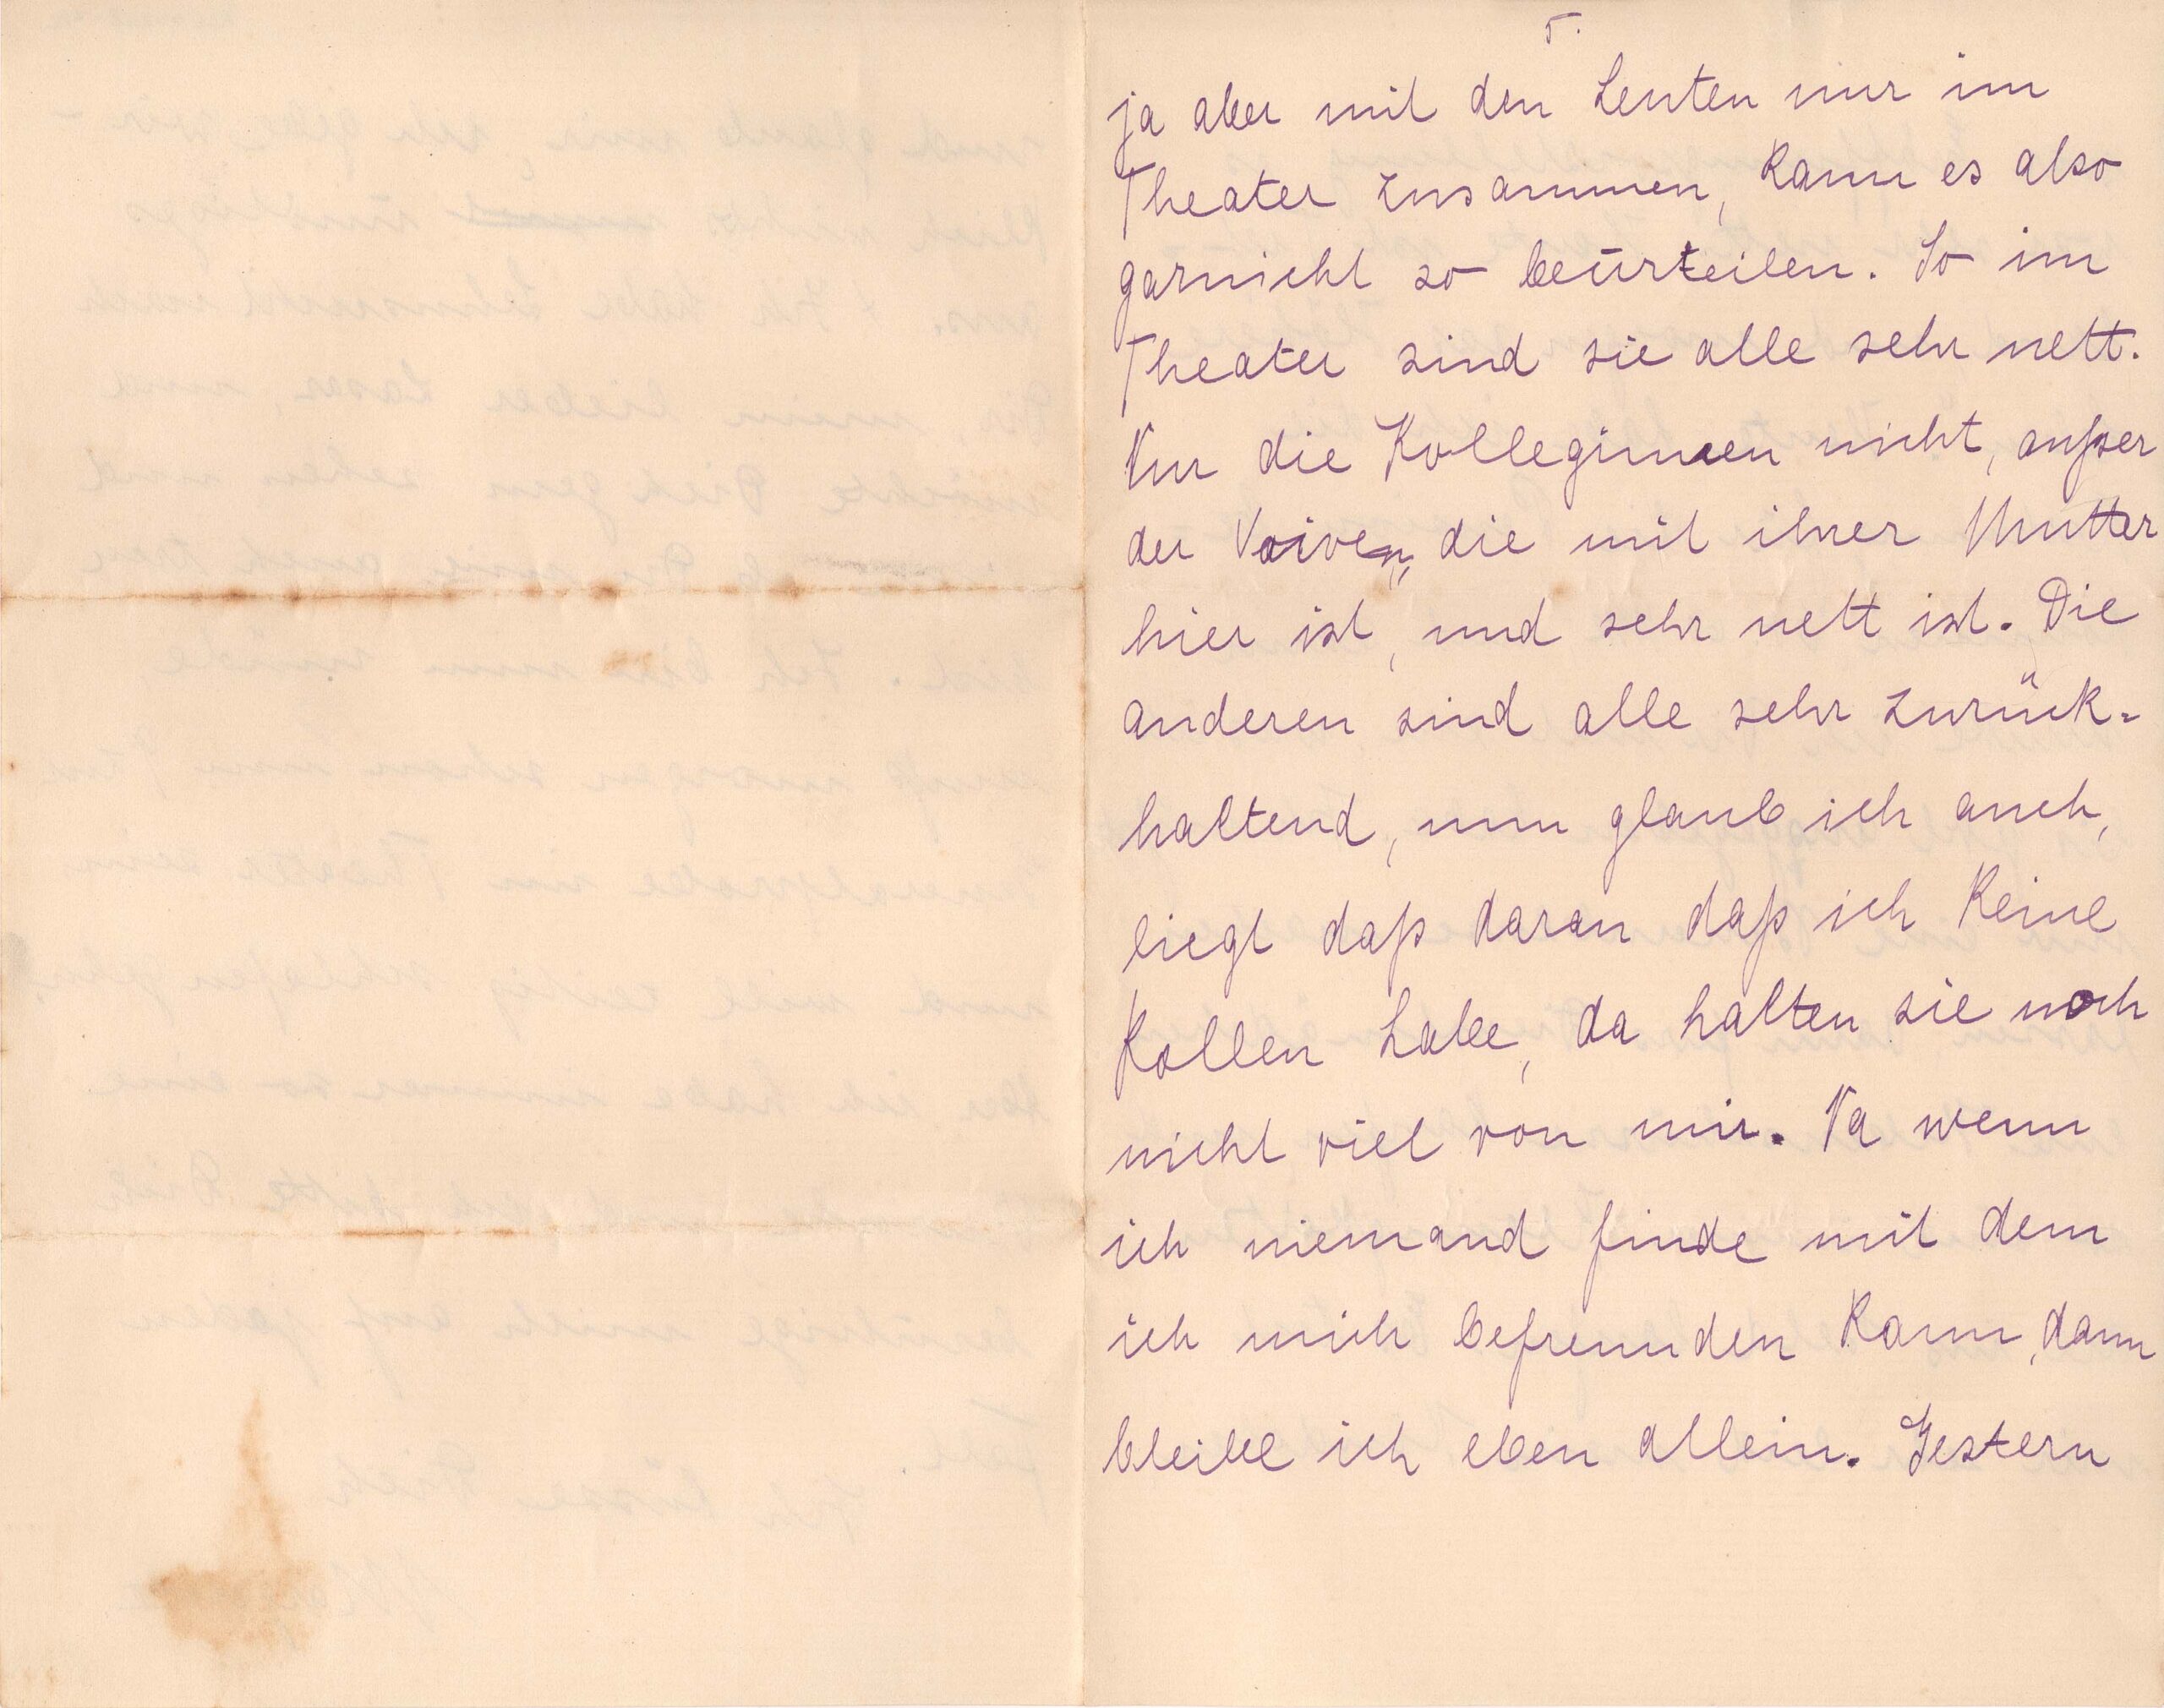 5.
ja aber mit den Leuten nur im
Theater zusammen, kann es also
garnicht so beurteilen. So im
Theater sind sie alle sehr nett.
Nur die Kolleginnen nicht, außer
der Naiven, die mit ihrer Mutter
hier ist, und sehr nett ist. Die
anderen sind alle sehr zurück-
haltend, nun glaub ich auch,
liegt daß daran daß ich keine
Rollen habe, da halten sie noch
nicht viel von mir. Na wenn
ich niemand finde mit dem
ich mich befreunden kann, dann
bleibe ich eben allein. Gestern